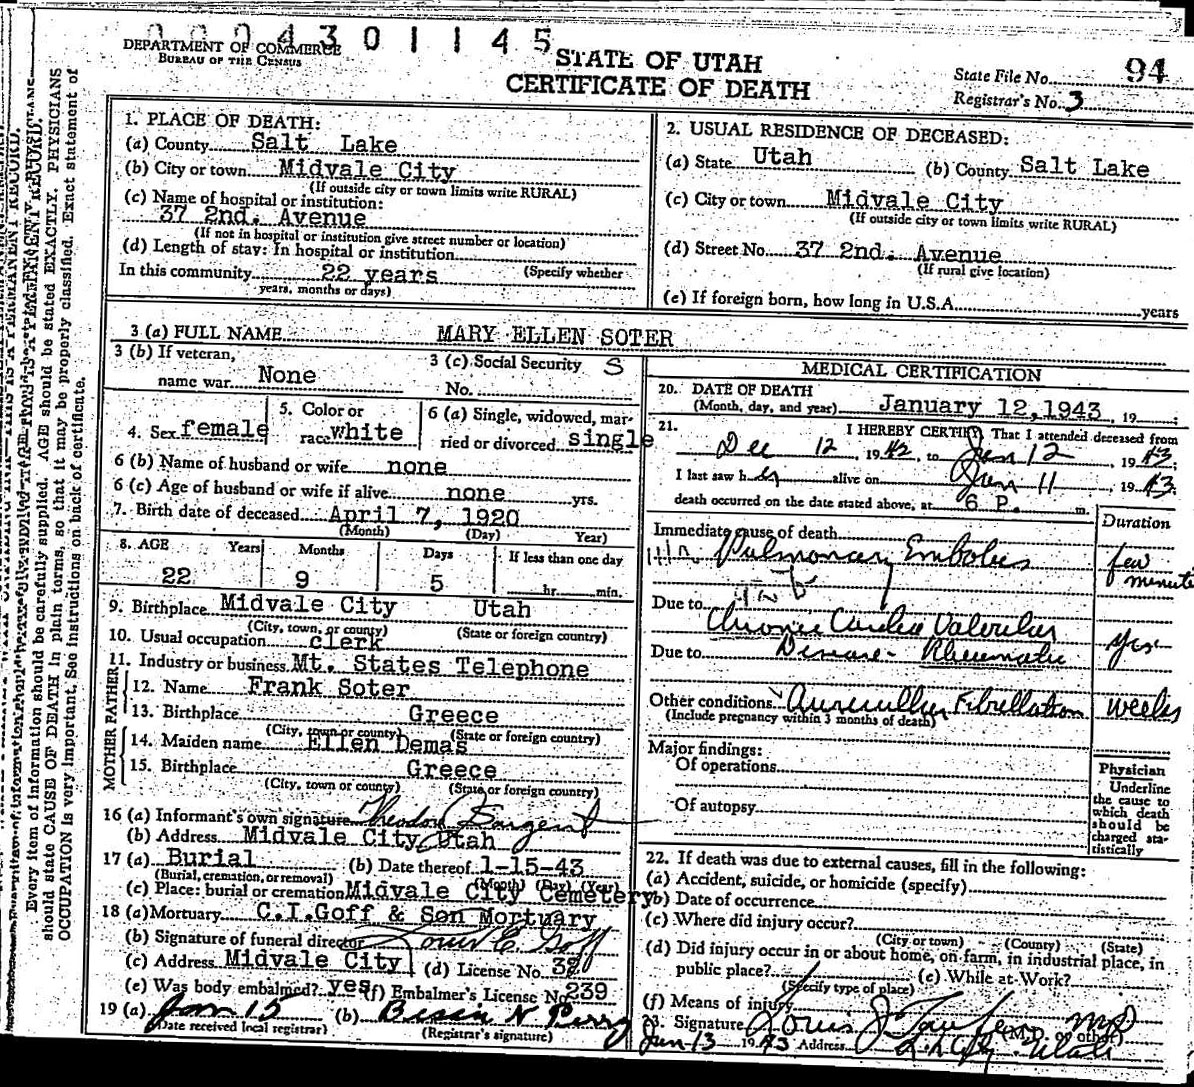 0004301145
DEPARTMENT OF COMMERCE
BUREAU OF THE CENSUS
STATE OF UTAH
CERTIFICATE OF DEATH
State File No. 94
Registrar's No. 3
Every item of information should be carefully supplied. AGE should be stated EXACTLY. PHYSICIANS
should state CAUSE OF DEATH in plain terms, so that it may be properly classified. Exact statement of
OCCUPATION is very important. See instructions on back of certificate.
1. PLACE OF DEATH:
(a) County Salt Lake
(b) City or town Midvale City
(If outside city or town limits write RURAL)
(c) Name of hospital or institution:
37 2nd. Avenue
(If not in hospital or institution give street number or location)
(d) Length of stay: In hospital or institution
In this community 22 years (Specify whether
years, months or days)
2. USUAL RESIDENCE OF DECEASED:
(a) State Utah (b) County Salt Lake
(c) City or town Midvale City
(If outside city or town limits write RURAL)
(d) Street No. 37 2nd. Avenue
(If rural give location)
(e) If foreign born, how long in U.S.A. years
3 (a) FULL NAME MARY ELLEN SOTER
3 (b) If veteran,
name war None
3 (c) Social Security S
No.
4. Sex female
5. Color or
race white
6 (a) Single, widowed, mar-
ried or divorced single
6 (b) Name of husband or wife none
6 (c) Age of husband or wife if alive none yrs.
7. Birth date of deceased April 7, 1920
(Month) (Day) Year)
8. AGE Years Months Days If less than one day
22 9 5 hr. min.
9. Birthplace Midvale City Utah
(City, town, or county) (State or foreign country)
10. Usual occupation clerk
11. Industry or business Mt. States Telephone
FATHER
12. Name Frank Soter
13. Birthplace Greece
(City, town or county) (State or foreign country)
MOTHER
14. Maiden name Ellen Demas
15. Birthplace Greece
(City, town or county) (State or foreign country)
16 (a) Informant's own signature Theodore Sargent
(b) Address Midvale City Utah
17 (a) Burial (b) Date thereof 1-15-43
(Burial, cremation, or removal) (Month) (Day) (Year)
(c) Place: burial or cremation Midvale City Cemetery
18 (a) Mortuary C.I.Goff & Son Mortuary
(b) Signature of funeral director Louis C. Goff
(c) Address Midvale City (d) License No. 32
(e) Was body embalmed? yes (f) Embalmer's License No. 239
19 (a) Jan 15 (b) N Perry
(Date received local registrar) (Registrar's signature)
MEDICAL CERTIFICATION
20. DATE OF DEATH
(Month, day, and year) January 12, 1943, 19
21. I HEREBY CERTIFY That I attended deceased from
Dec 12, 1942, to Jan 12, 1943;
I last saw her alive on Jan 11, 1943;
death occurred on the date stated above, at 6 P. m.
Duration
Immediate cause of death
Pulmonary Embolus few minutes
Due to
Chronic Cardiac Valvular yrs
Due to Disease - Rheumatic
Other conditions Auricullar Fibrellation weeks
(Include pregnancy within 3 months of death)
Major findings:
Of operations
Of autopsy
Physician
Underline
the cause to
which death
should be
charged sta-
tistically
22. If death was due to external causes, fill in the following:
(a) Accident, suicide, or homicide (specify)
(b) Date of occurrence
(c) Where did injury occur?
(City or town) (County) (State)
(d) Did injury occur in or about home, on farm, in industrial place, in
public place? (e) While at Work?
(Specify type of place)
(f) Means of injury
23. Signature Louis J. MD
(M.D. or other)
Jan 13 1943 Address S.L. City Utah